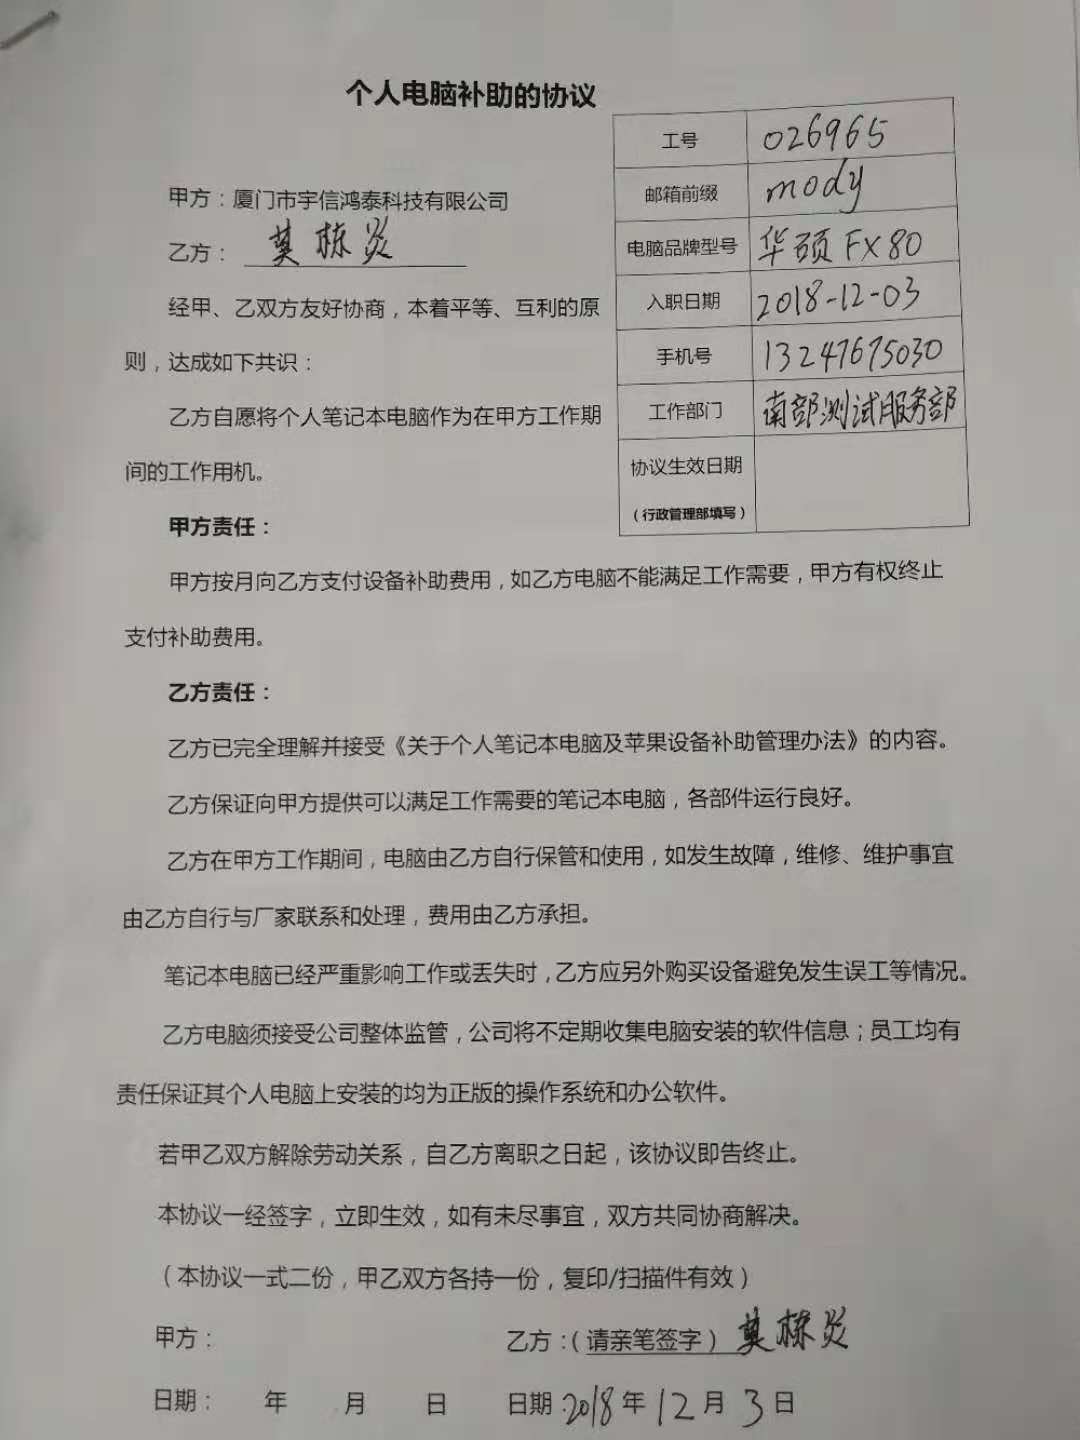 个人电脑补助的协议
工号 026965
邮箱前缀 mody
电脑品牌型号 华硕 FX80
入职日期 2018-12-03
手机号 13247675030
工作部门 南部测试服务部
协议生效日期
（行政管理部填写）
甲方：厦门市宇信鸿泰科技有限公司
乙方：莫栋炎
经甲、乙双方友好协商，本着平等、互利的原
则，达成如下共识：
乙方自愿将个人笔记本电脑作为在甲方工作期
间的工作用机。
甲方责任：
甲方按月向乙方支付设备补助费用，如乙方电脑不能满足工作需要，甲方有权终止
支付补助费用。
乙方责任：
乙方已完全理解并接受《关于个人笔记本电脑及苹果设备补助管理办法》的内容。
乙方保证向甲方提供可以满足工作需要的笔记本电脑，各部件运行良好。
乙方在甲方工作期间，电脑由乙方自行保管和使用，如发生故障，维修、维护事宜
由乙方自行与厂家联系和处理，费用由乙方承担。
笔记本电脑已经严重影响工作或丢失时，乙方应另外购买设备避免发生误工等情况。
乙方电脑须接受公司整体监管，公司将不定期收集电脑安装的软件信息；员工均有
责任保证其个人电脑上安装的均为正版的操作系统和办公软件。
若甲乙双方解除劳动关系，自乙方离职之日起，该协议即告终止。
本协议一经签字，立即生效，如有未尽事宜，双方共同协商解决。
（本协议一式二份，甲乙双方各持一份，复印/扫描件有效）
甲方： 乙方：（请亲笔签字） 莫栋炎
日期： 年 月 日 日期：2018年12月3日